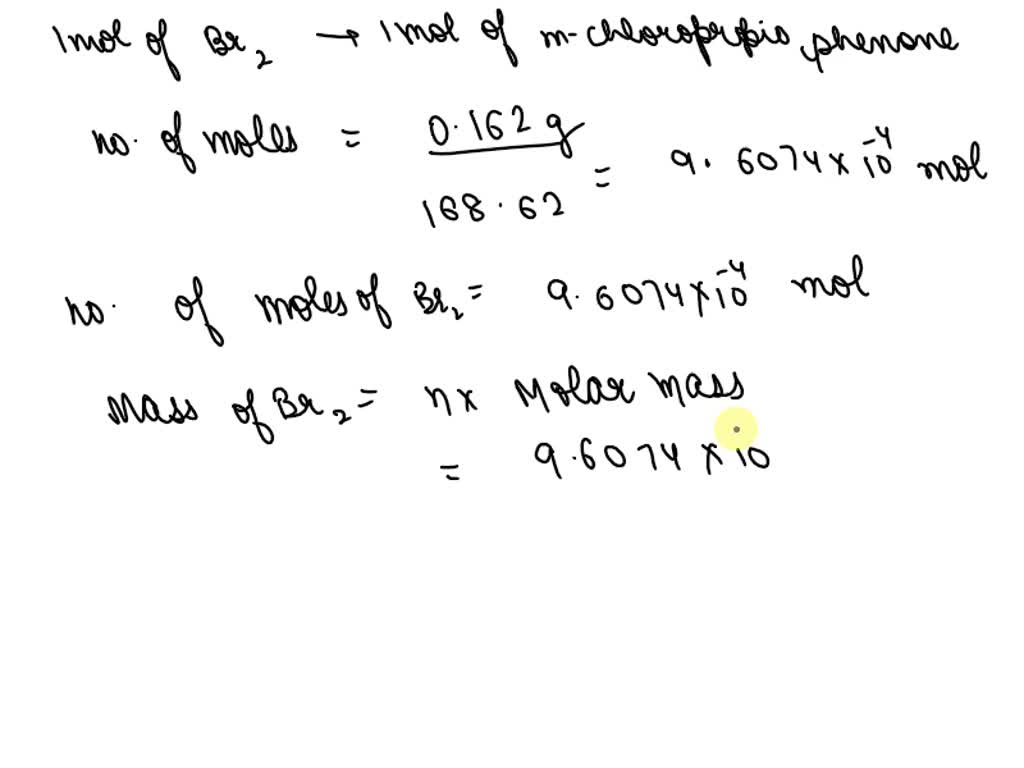 1mol of Br2 → 1mol of m-chloropropio phenone
no. of moles = 0.162 g / 168.62 = 9.6074 × 10^-4 mol
no. of moles of Br2 = 9.6074 × 10^-4 mol
Mass of Br2 = n × Molar mass
= 9.6074 × 10